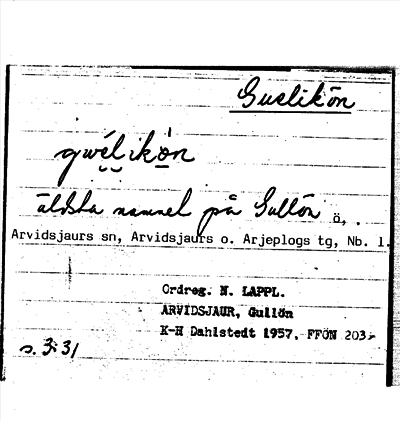 Guelikön
gwélikòn
äldsta namnet på Gullön ö,.
Arvidsjaurs sn, Arvidsjaurs o. Arjeplogs tg, Nb. l.
Ordreg. N. LAPPL.
ARVIDSJAUR, Gullön
K-H Dahlstedt 1957, FFÖN 203:-
s. 3:31